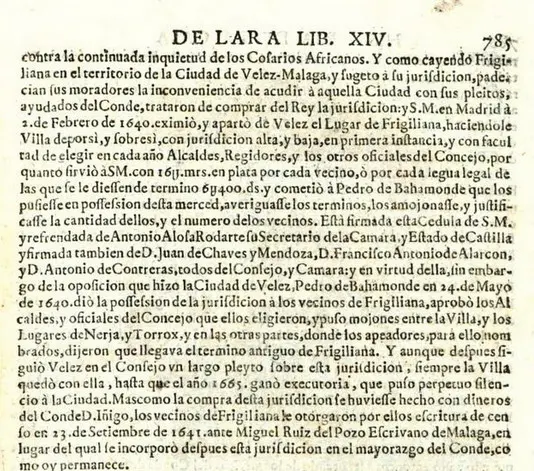 DE LARA LIB. XIV. 785
contra la continuada inquietud de los Cosarios Africanos. Y como cayendo Frigi-
liana en el territorio de la Ciudad de Velez-Malaga, y sugeto à su jurisdicion, pade-
cian sus moradores la inconveniencia de acudir à aquella Ciudad con sus pleitos,
ayudados del Conde, trataron de comprar del Rey la jurisdicion: y S.M. en Madrid à
2. de Febrero de 1640. eximiò, y apartò de Velez el Lugar de Frigiliana, haciendole
Villa deporsi, y sobresi, con jurisdicion alta, y baja, en primera instancia, y con facul
tad de elegir en cada año Alcaldes, Regidores, y los otros oficiales del Concejo, por
quanto sirviò à SM. con 16ɥ. mrs. en plata por cada vecino, ò por cada legua legal de
las que se le diessen de termino 6ɥ400. ds. y cometiò à Pedro de Bahamonde que los
pusiesse en possession desta merced, averiguasse los terminos, los amojonasse, y justifi-
casse la cantidad dellos, y el numero de los vecinos. Està firmada esta Cedula de S. M.
y refrendada de Antonio Alosa Rodarte su Secretario de la Camara, y Estado de Castilla
y firmada tambien de D. Juan de Chaves y Mendoza, D. Francisco Antonio de Alarcon,
y D. Antonio de Contreras, todos del Consejo, y Camara: y en virtud della, sin embar-
go de la oposicion que hizo la Ciudad de Velez, Pedro de Bahamonde en 24. de Mayo
de 1640. diò la possession de la jurisdicion à los vecinos de Frigiliana, aprobò los Al
caldes, y oficiales del Concejo que ellos eligieron, y puso mojones entre la Villa, y los
Lugares de Nerja, y Torrox, y en las otras partes, donde los apeadores, para ello nom
brados, dijeron que llegava el termino antiguo de Frigiliana. Y aunque despues si-
guiò Velez en el Consejo vn largo pleyto sobre esta jurisdicion, siempre la Villa
quedò con ella, hasta que el año 1665. ganò executoria, que puso perpetuo silen-
cio à la Ciudad. Mas como la compra desta jurisdicion se huviesse hecho con dineros
del Conde D. Iñigo, los vecinos de Frigiliana le otorgaron por ellos escritura de cen
so en 23. de Setiembre de 1641. ante Miguel Ruiz del Pozo Escrivano de Malaga, en
lugar del qual se incorporò despues esta jurisdicion en el mayorazgo del Conde, co
mo oy permanece.